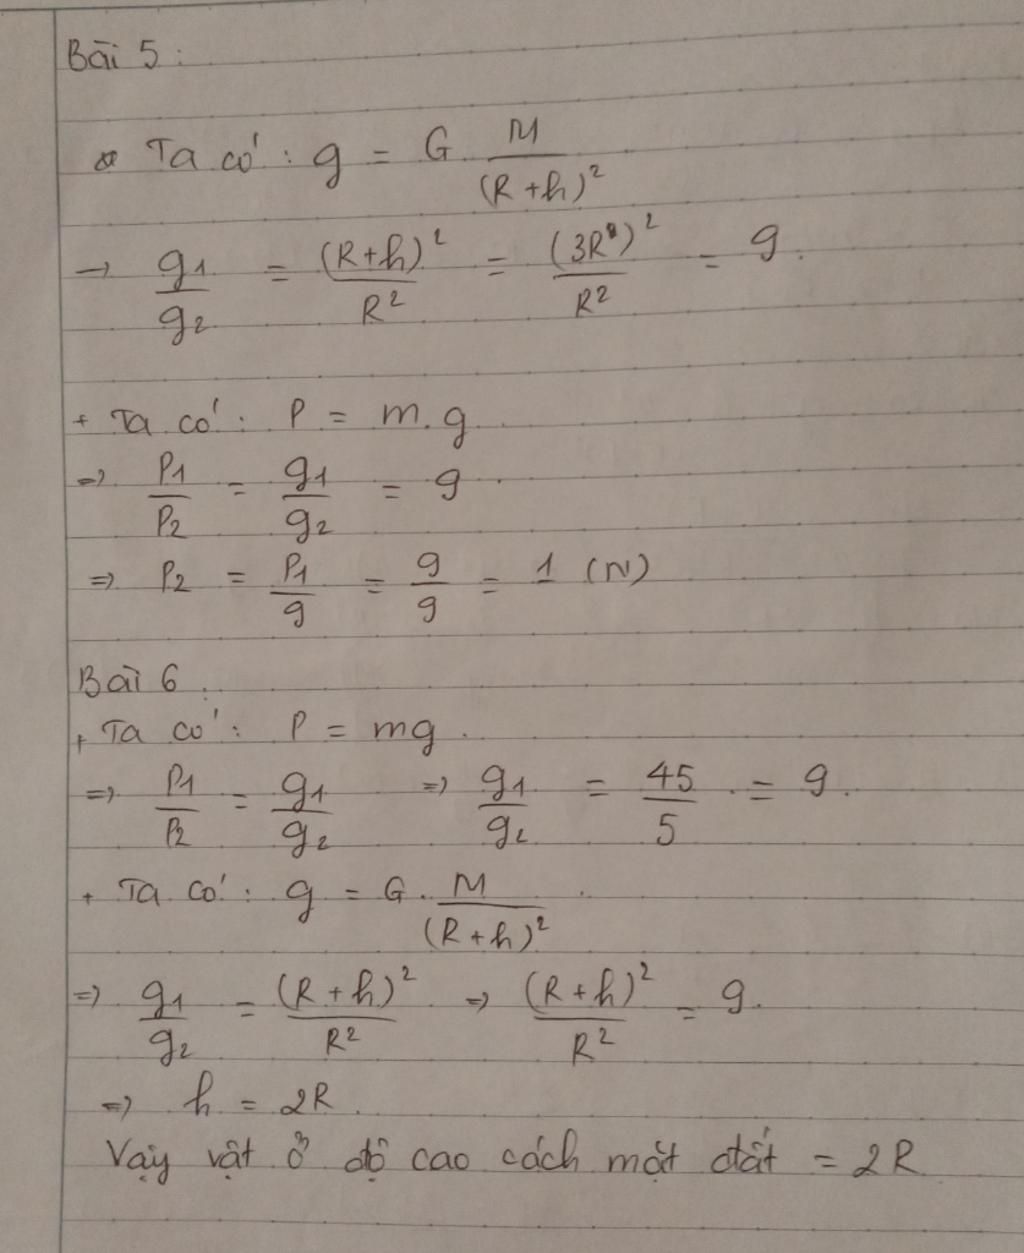 Bài 5 :
* Ta có : g = G M/(R+h)²
→ g1/g2 = (R+h)²/R² = (3R)²/R² = 9.
+ Ta có : P = m.g
=> P1/P2 = g1/g2 = 9.
=> P2 = P1/9 = 9/9 = 1 (N)
Bài 6.
+ Ta có : P = mg.
=> P1/P2 = g1/g2 => g1/g2 = 45/5 = 9.
+ Ta có : g = G. M/(R+h)².
=> g1/g2 = (R+h)²/R² => (R+h)²/R² = 9.
=> h = 2R.
Vậy vật ở độ cao cách mặt đất = 2R